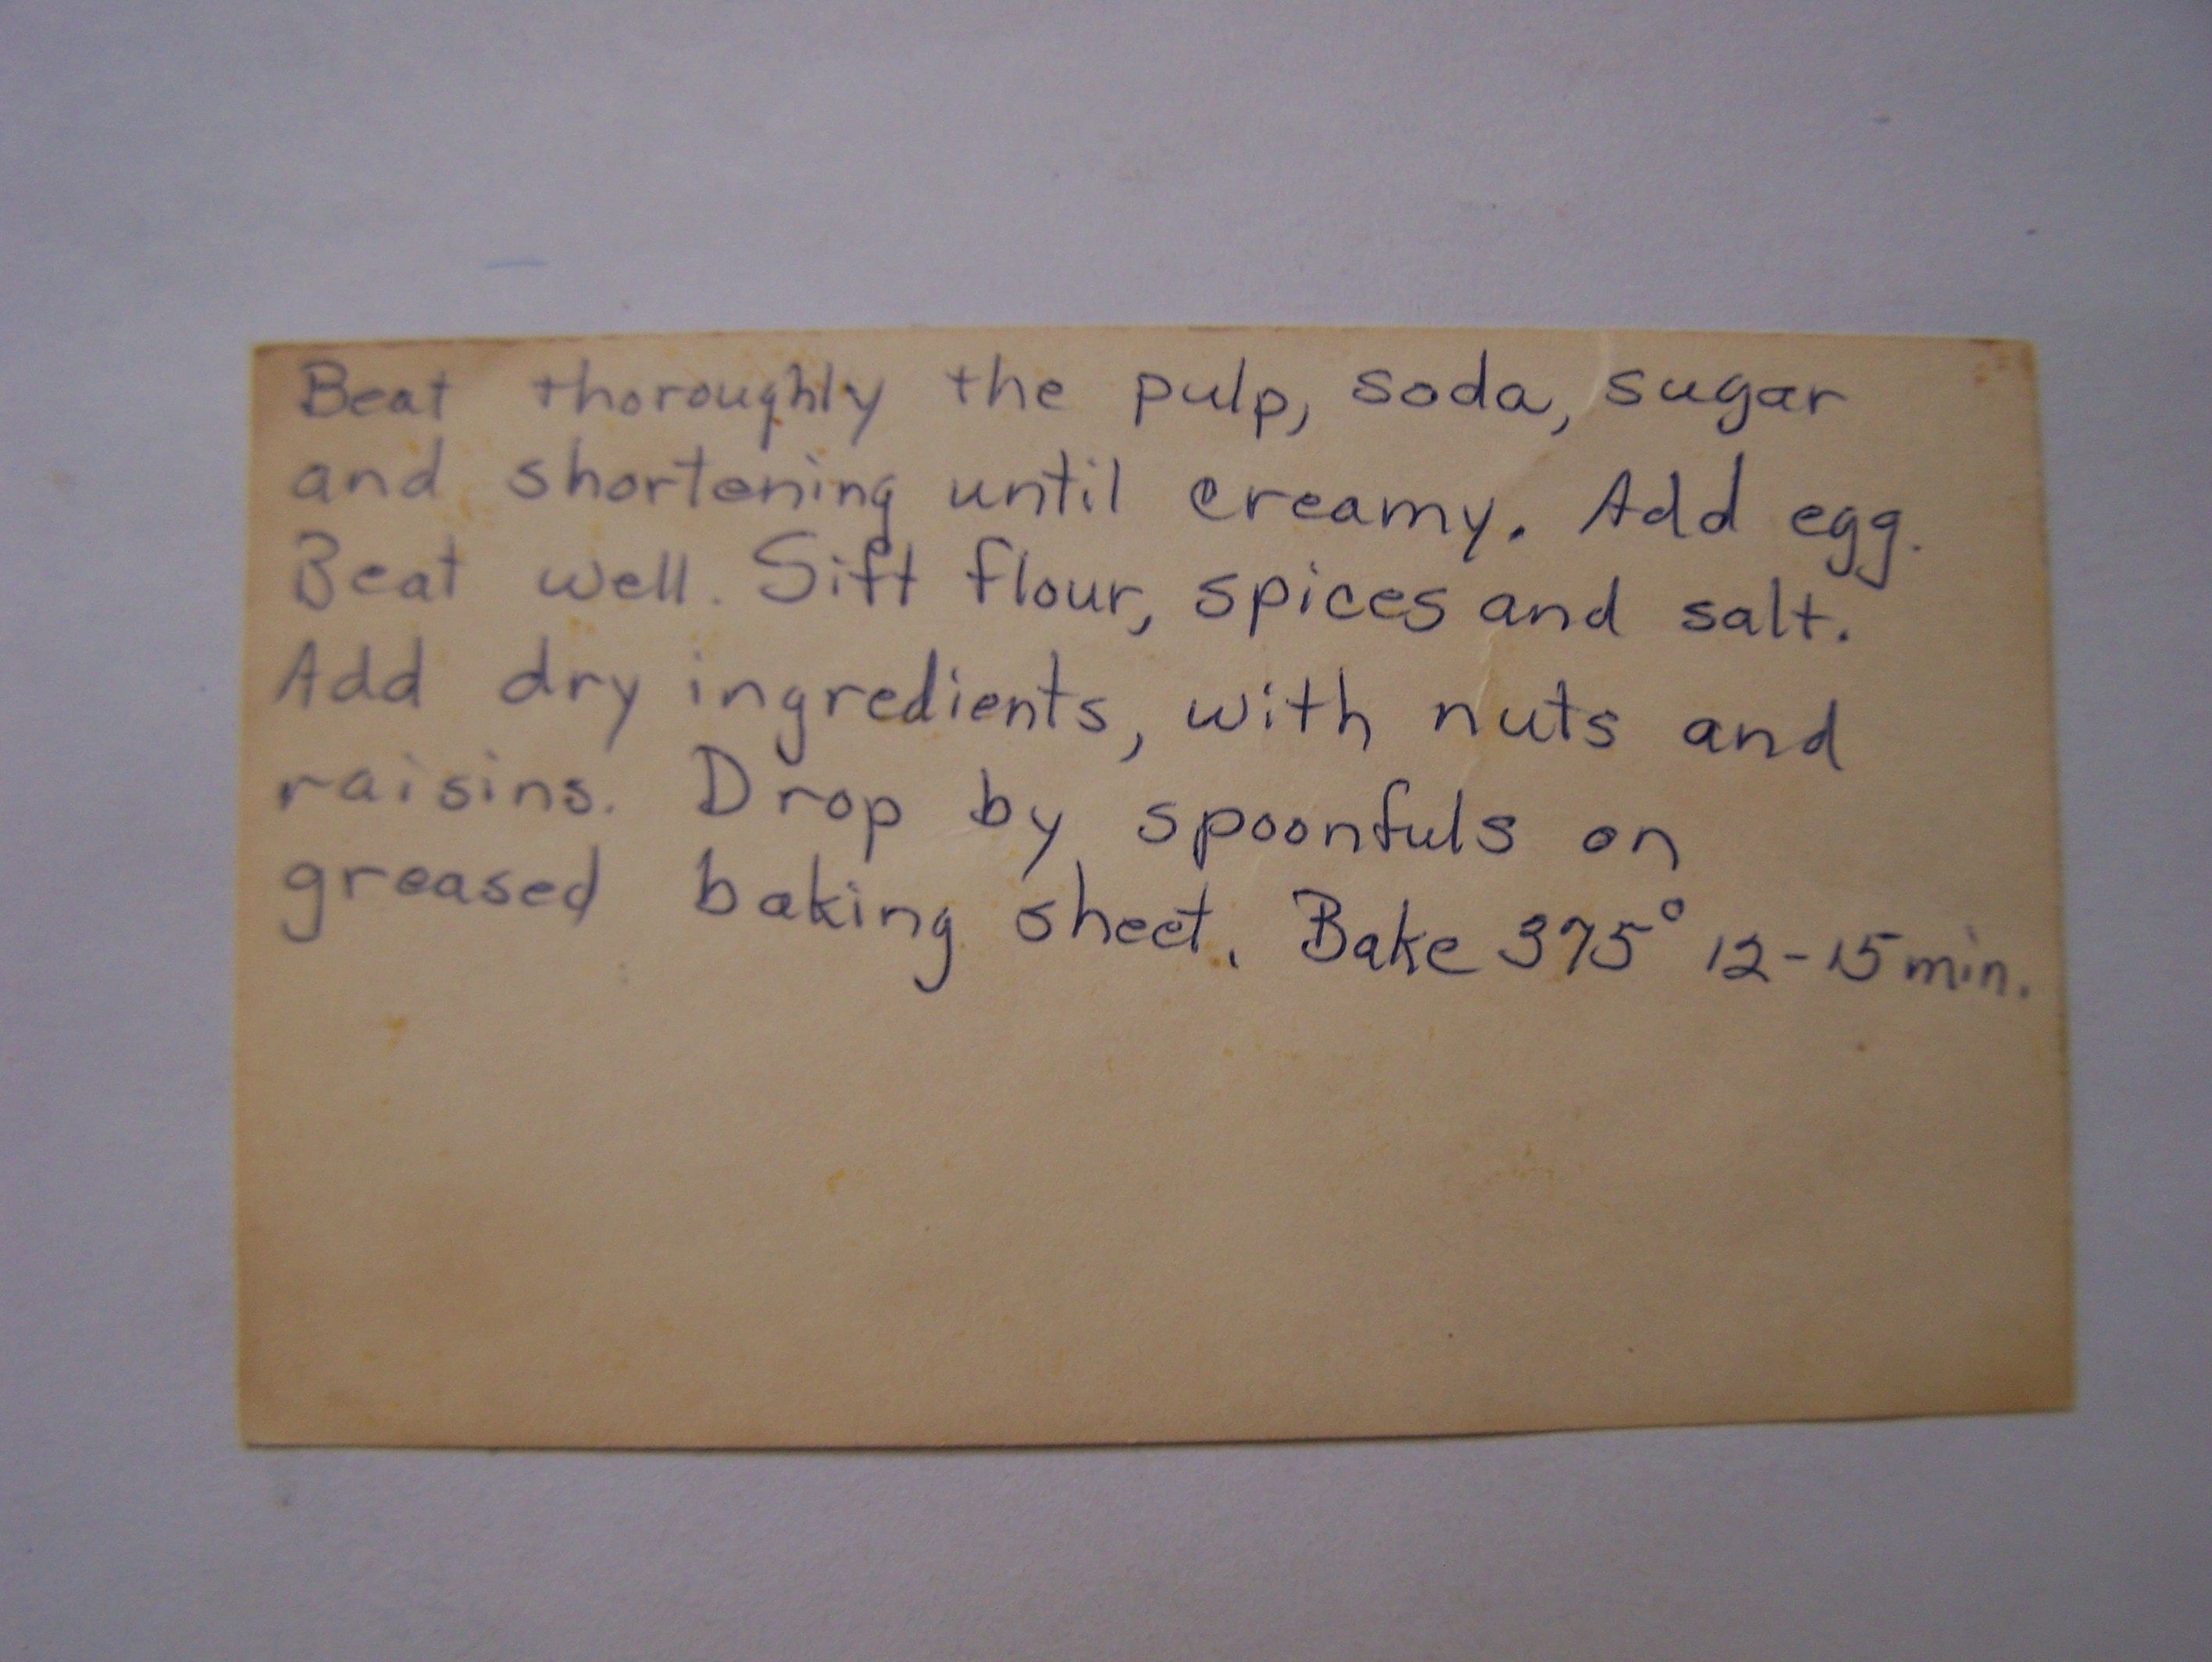 Beat thoroughly the pulp, soda, sugar
and shortening until creamy. Add egg.
Beat well. Sift flour, spices and salt.
Add dry ingredients, with nuts and
raisins. Drop by spoonfuls on
greased baking sheet. Bake 375° 12-15 min.